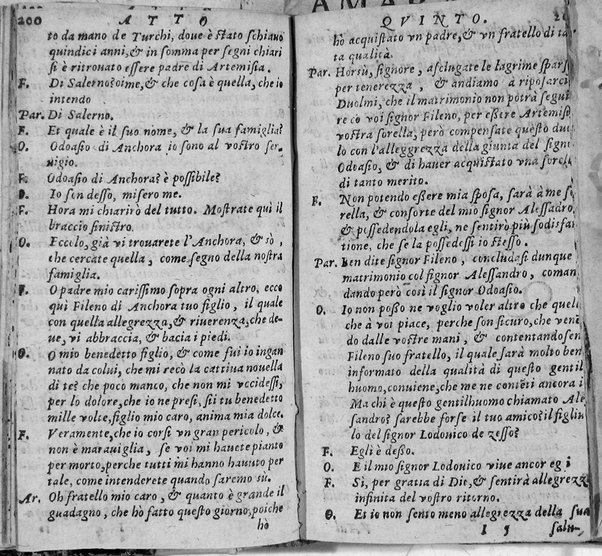 200 ATTO
to da mano de Turchi, doue è stato schiauo
quindici anni, & in somma per segni chiari
si è ritrouato essere padre di Artemisia.
F. Di Salerno? oime, & che cosa è quella, che io
intendo
Par. Di Salerno.
F. Et quale è il suo nome, & la sua famiglia?
O. Odoasio di Anchora io sono al vostro ser-
uigio.
F. Odoasio di Anchora? è possibile?
O. Io son desso, misero me.
F. Hora mi chiarirò del tutto. Mostrate quì il
braccio sinistro.
O. Eccolo, già vi trouarete l'Anchora, & sò,
che cercate quella, come segno della nostra
famiglia.
F. O padre mio carissimo sopra ogni altro, ecco
quì Fileno di Anchora tuo figlio, il quale
con quella allegrezza, & riuerenza, che de-
ue, vi abbraccia, & bacia i piedi.
O. O mio benedetto figlio, & come fui io ingan
nato da colui, che mi recò la cattiua nouella
di te? che poco manco, che non mi vccidessi,
per lo dolore, che io ne presi, sii tu benedetto
mille volte, figlio mio caro, anima mia dolce.
F. Veramente, che io corsi vn gran pericolo, &
non è marauiglia, se voi mi hauete pianto
per morto, perche tutti mi hanno hauuto per
tale, come intenderete quando saremo sù.
Ar. Oh fratello mio caro, & quanto è grande il
guadagno, che hò fatto questo giorno, poiche
hò
QVINTO.
hò acquistato vn padre, & vn fratello di ta-
ta qualità.
Par. Horsù, signore, asciugate le lagrime spars
per tenerezza, & andiamo à riposarci
Duolmi, che il matrimonio non potrà segui
re cõ voi signor Fileno, per essere Artemisi
vostra sorella, però compensate questo duo
lo con l'allegrezza della giunta del signor
Odoasio, & di hauer acquistato vna sorell
di tanto merito.
F. Non potendo essere mia sposa, sarà à me so
rella, & consorte del mio signor Alessadro,
& possedendola egli, ne sentirò più sodisfat
tione, che se la possedessi io stesso.
Par. ben dite signor Fileno, concludasi dunque i
matrimonio col signor Alessandro, coman
dando però così il signor Odoasio.
O. Io non posso ne voglio voler altro che quell
che à voi piace, perche son sicuro, che venẽ
do dalle vostre mani, & contentandosen
Fileno suo fratello, il quale sarà molto ben
informato della qualità di questo gentil
huomo, conuiene, che me ne contẽti ancora i
Ma chi è questo gentilhuomo chiamato Ale
sandro? sarebbe forse il tuo amico? il figliu
lo del signor Lodouico de zesso?
F. Egli è desso.
O. E il mio signor Lodouico viue ancor eg i
F. Sì, per gratia di Dio, & sentirà allegrezz
infinita del vostro ritorno.
O. Et io non sento meno allegrezza della sua
I 5 salu-